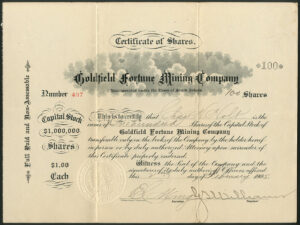 Certificate of Shares.
100
Goldfield Fortune Mining Company
Incorporated under the Laws of South Dakota
Number 497
100 Shares
Full Paid and Non-Assessable
Capital Stock
$1,000,000
Shares
$1.00
Each
This is to certify that is the
owner of One Hundred Shares of the Capital Stock of
Goldfield Fortune Mining Company
transferable only on the Books of the Company by the holder hereof
in person or by duly authorized Attorney upon surrender of
this Certificate properly endorsed.
Witness the Seal of the Company and the
signatures of its duly authorized Officers affixed
this day of February
J. Williams